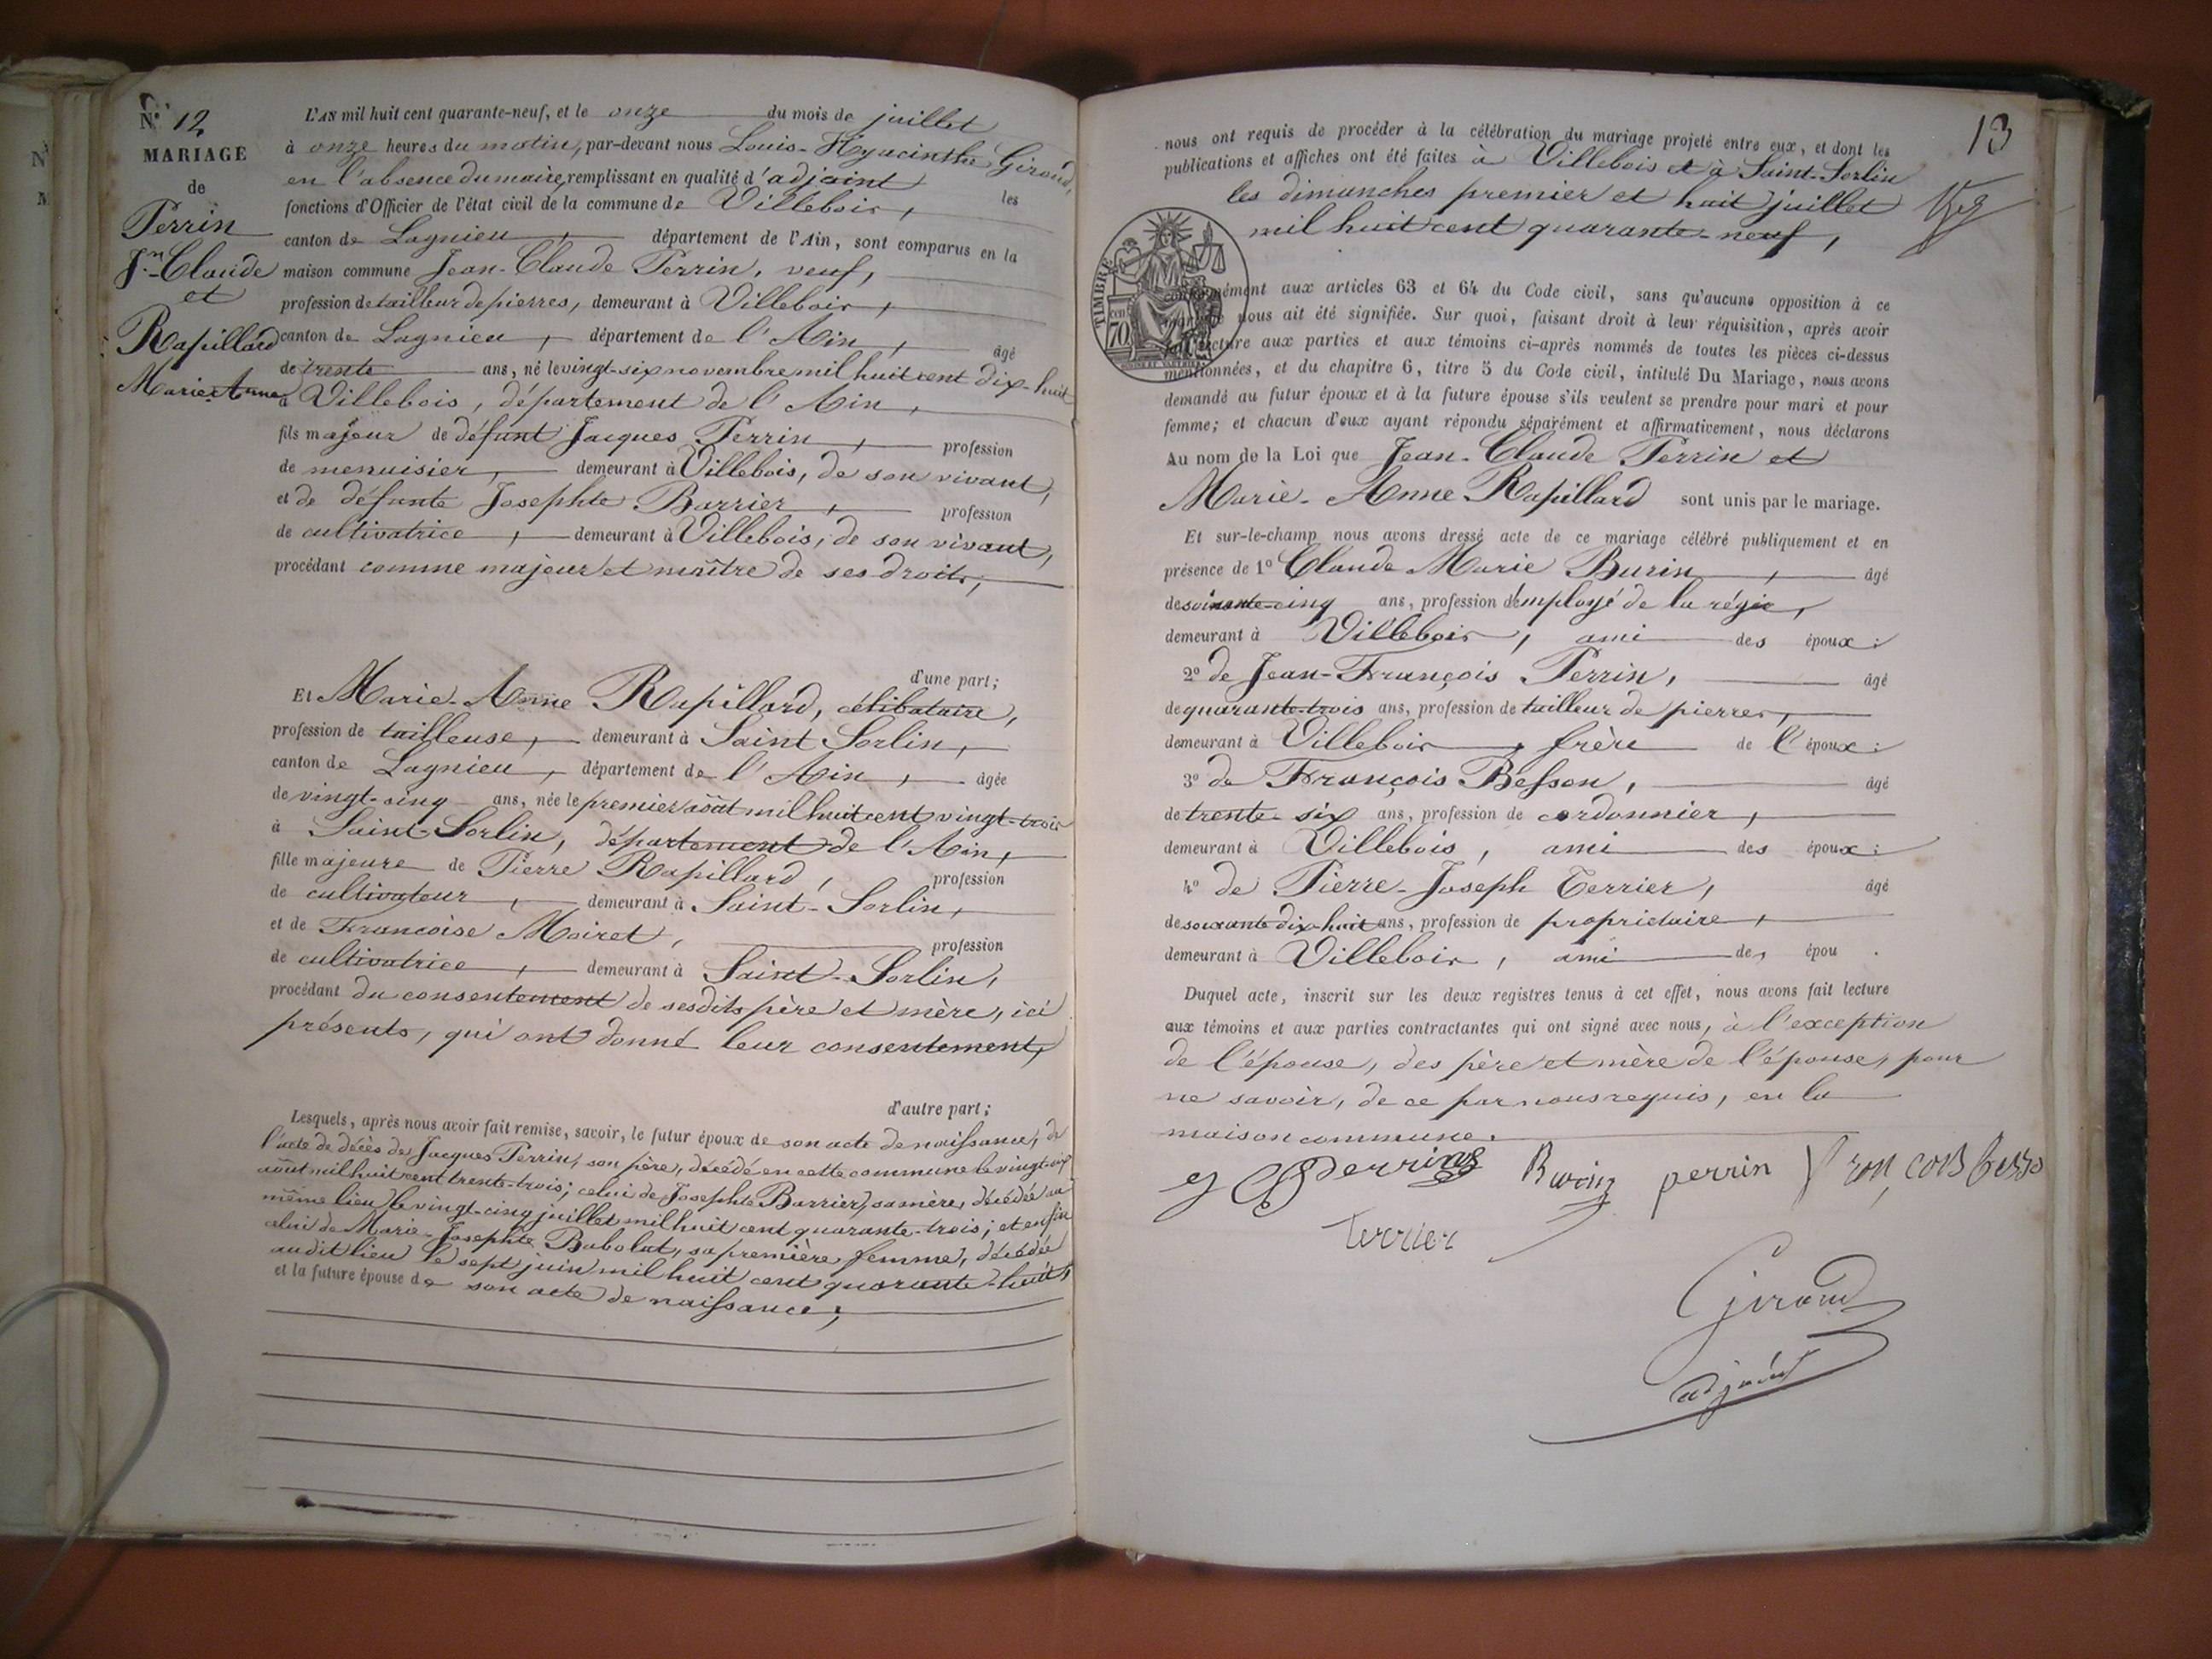 N° 12
MARIAGE
de
Perrin
Jn Claude
et
Rapillard
Marie Anne
L'AN mil huit cent quarante-neuf, et le onze du mois de juillet
à onze heures du matin, par-devant nous Louis-Hyacinthe Giroud,
en l'absence du maire, remplissant en qualité d'adjoint les
fonctions d'Officier de l'état civil de la commune de Villebois,
canton de Lagnieu, département de l'Ain, sont comparus en la
maison commune Jean-Claude Perrin, veuf,
profession de tailleur de pierres, demeurant à Villebois,
canton de Lagnieu, département de l'Ain, âgé
de trente ans, né le vingt-six novembre mil huit cent dix-huit
à Villebois, département de l'Ain,
fils majeur de défunt Jacques Perrin, profession
de menuisier, demeurant à Villebois, de son vivant,
et de défunte Josephte Barrier, profession
de cultivatrice, demeurant à Villebois, de son vivant,
procédant comme majeur et maître de ses droits,
d'une part;
Et Marie-Anne Rapillard, célibataire,
profession de tailleuse, demeurant à Saint Sorlin,
canton de Lagnieu, département de l'Ain, âgée
de vingt-cinq ans, née le premier août mil huit cent vingt-trois
à Saint-Sorlin, département de l'Ain,
fille majeure de Pierre Rapillard, profession
de cultivateur, demeurant à Saint-Sorlin,
et de Francoise Moiret, profession
de cultivatrice, demeurant à Saint-Sorlin,
procédant du consentement de sesdits père et mère, ici
présents, qui ont donné leur consentement,
d'autre part;
Lesquels, après nous avoir fait remise, savoir, le futur époux de son acte de naissance, de
l'acte de décès de Jacques Perrin, son père, décédé en cette commune le vingt-six
août mil huit cent trente-trois; celui de Josephte Barrier, sa mère, décédée au
même lieu le vingt-cinq juillet mil huit cent quarante-trois; et enfin
celui de Marie-Josephte Babolat, sa première femme, décédée
audit lieu le sept juin mil huit cent quarante-huit,
et la future épouse de son acte de naissance;
13
nous ont requis de procéder à la célébration du mariage projeté entre eux, et dont les
publications et affiches ont été faites à Villebois et à Saint-Sorlin
les dimanches premier et huit juillet
mil huit cent quarante-neuf,
TIMBRE
70
conformément aux articles 63 et 64 du Code civil, sans qu'aucune opposition à ce
mariage nous ait été signifiée. Sur quoi, faisant droit à leur réquisition, après avoir
fait lecture aux parties et aux témoins ci-après nommés de toutes les pièces ci-dessus
mentionnées, et du chapitre 6, titre 5 du Code civil, intitulé Du Mariage, nous avons
demandé au futur époux et à la future épouse s'ils veulent se prendre pour mari et pour
femme; et chacun d'eux ayant répondu séparément et affirmativement, nous déclarons
Au nom de la Loi que Jean-Claude Perrin et
Marie-Anne Rapillard sont unis par le mariage.
Et sur-le-champ nous avons dressé acte de ce mariage célébré publiquement et en
présence de 1° Claude Marie Burin, âgé
de soixante-cinq ans, profession d'employé de la régie,
demeurant à Villebois, ami des époux:
2° de Jean-François Perrin, âgé
de quarante-trois ans, profession de tailleur de pierres,
demeurant à Villebois, frère de l'époux:
3° de François Besson, âgé
de trente-six ans, profession de cordonnier,
demeurant à Villebois, ami des époux:
4° de Pierre-Joseph Terrier, âgé
de soixante dix-huit ans, profession de propriétaire,
demeurant à Villebois, ami des épou .
Duquel acte, inscrit sur les deux registres tenus à cet effet, nous avons fait lecture
aux témoins et aux parties contractantes qui ont signé avec nous, à l'exception
de l'épouse, des père et mère de l'épouse, pour
ne savoir, de ce par nous requis, en la
maison commune.
Perrin Burin perrin françois besso
terrier
Giroud
adjoint